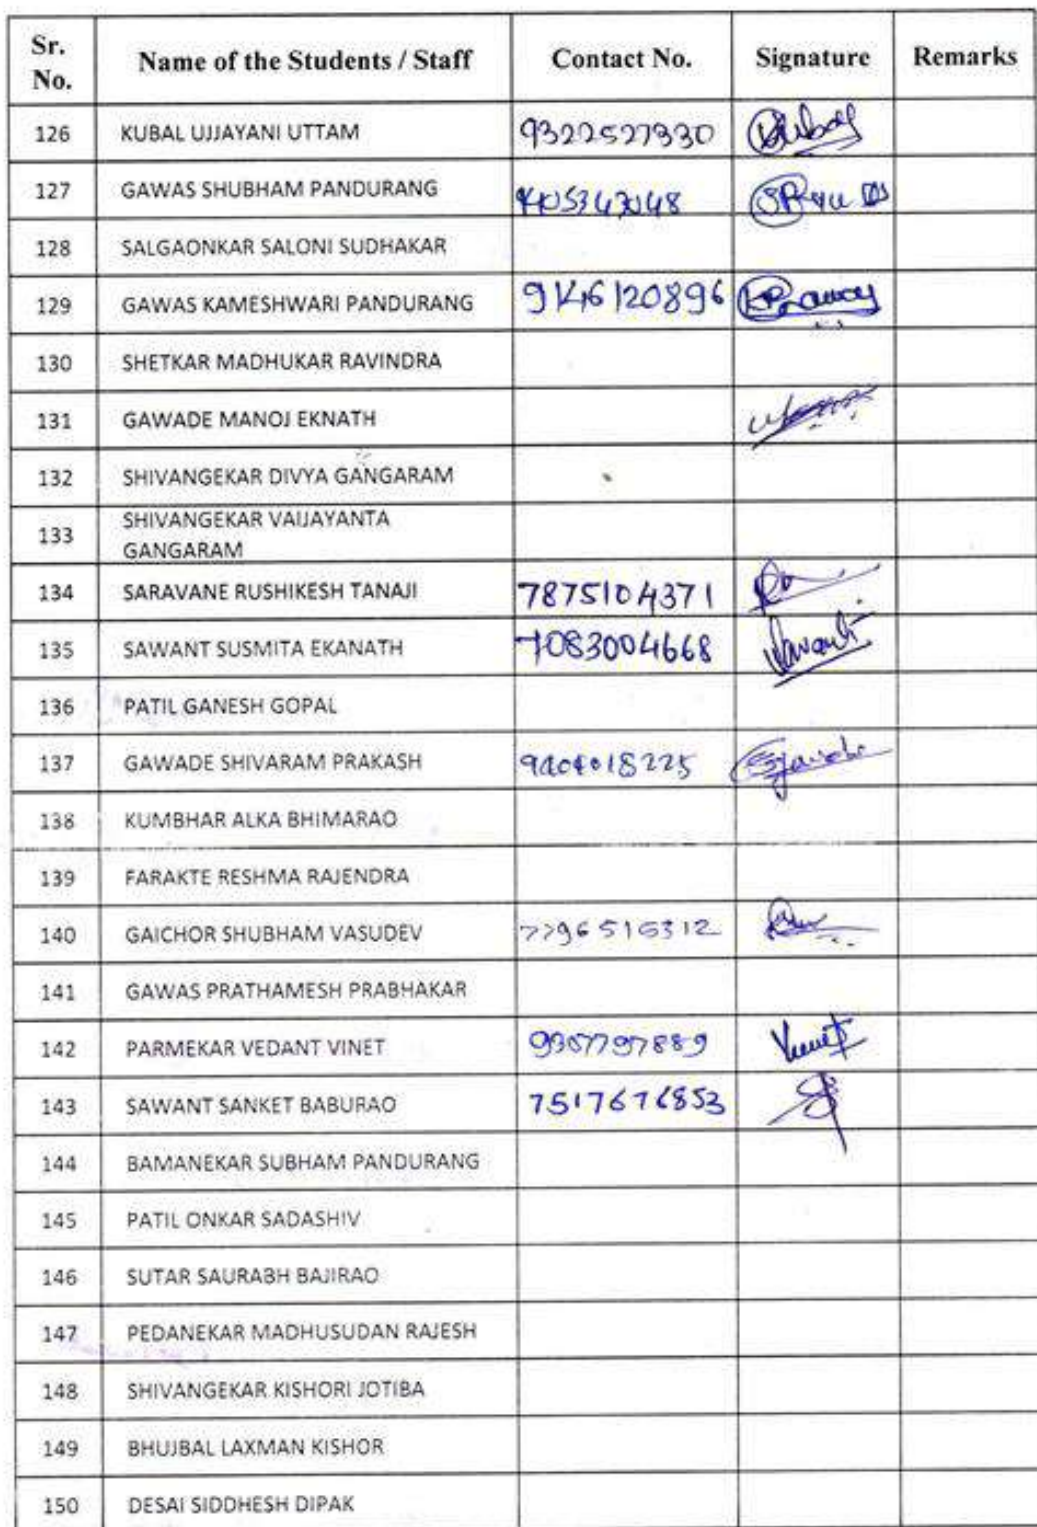 Sr. No. Name of the Students / Staff Contact No. Signature Remarks
126 KUBAL UJJAYANI UTTAM 9322527330
127 GAWAS SHUBHAM PANDURANG
128 SALGAONKAR SALONI SUDHAKAR
129 GAWAS KAMESHWARI PANDURANG 9146120896
130 SHETKAR MADHUKAR RAVINDRA
131 GAWADE MANOJ EKNATH
132 SHIVANGEKAR DIVYA GANGARAM
133 SHIVANGEKAR VAIJAYANTA
GANGARAM
134 SARAVANE RUSHIKESH TANAJI 7875104371
135 SAWANT SUSMITA EKANATH 7083004668 Sawant
136 PATIL GANESH GOPAL
137 GAWADE SHIVARAM PRAKASH
138 KUMBHAR ALKA BHIMARAO
139 FARAKTE RESHMA RAJENDRA
140 GAICHOR SHUBHAM VASUDEV 7796516312
141 GAWAS PRATHAMESH PRABHAKAR
142 PARMEKAR VEDANT VINET 9307797889
143 SAWANT SANKET BABURAO 7517676853
144 BAMANEKAR SUBHAM PANDURANG
145 PATIL ONKAR SADASHIV
146 SUTAR SAURABH BAJIRAO
147 PEDANEKAR MADHUSUDAN RAJESH
148 SHIVANGEKAR KISHORI JOTIBA
149 BHUJBAL LAXMAN KISHOR
150 DESAI SIDDHESH DIPAK